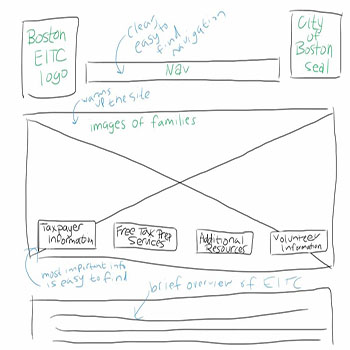 Boston
EITC
logo
clear,
easy to
find
navigation
Nav
City
of
Boston
seal
warms
up the site
images of families
Taxpayer
Information
Free Tax Prep
Services
Additional
Resources
Volunteer
Information
most important info
is easy to find
brief overview of EITC